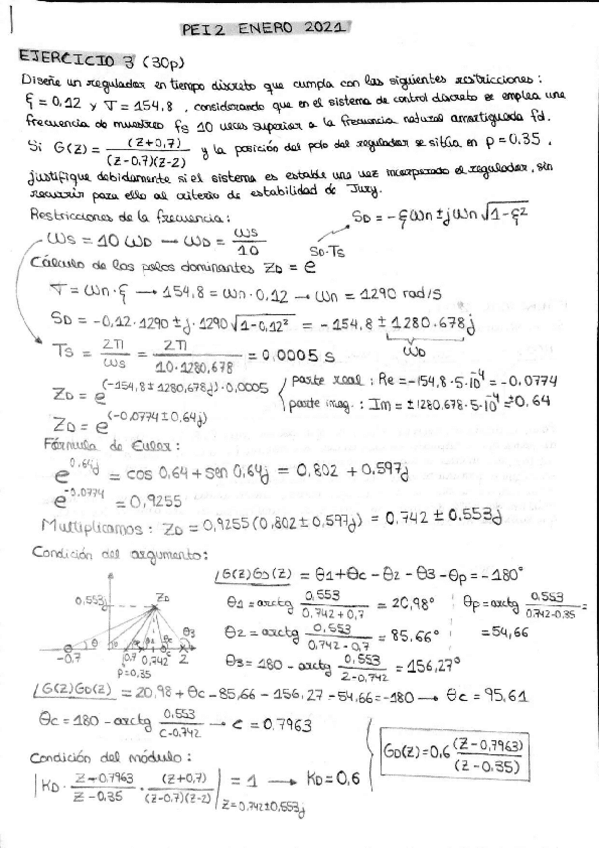 PEI2 ENERO 2021
EJERCICIO 3 (30p)
Diseñe un regulador en tiempo discreto que cumpla con las siguientes restricciones:
ξ = 0,12 y σ = 154,8, considerando que en el sistema de control discreto se emplea una
frecuencia de muestreo fs 10 veces superior a la frecuencia natural amortiguada fd.
Si G(z) = (z+0,7)/((z-0,7)(z-2)) y la posición del polo del regulador se sitúa en p = 0.35,
justifique debidamente si el sistema es estable una vez incorporado el regulador, sin
recurrir para ello al criterio de estabilidad de Jury.
Restricciones de la frecuencia: SD = -ξWn ± jWn √(1-ξ²)
Ws = 10 WD — WD = Ws/10
SD·Ts
Cálculo de los polos dominantes ZD = e
σ = Wn·ξ → 154,8 = Wn·0,12 → Wn = 1290 rad/s
SD = -0,12·1290 ± j·1290 √(1-0,12²) = -154,8 ± 1280.678j
WD
Ts = 2π/Ws = 2π/(10·1280,678) = 0,0005 s
ZD = e^(-154,8 ± 1280,678j)·0,0005
parte real: Re = -154,8·5·10^-4 = -0,0774
parte imag.: Im = ±1280,678·5·10^-4 = ±0.64
ZD = e^(-0,0774 ± 0,64j)
Fórmula de Euler:
e^0.64j = cos 0,64 + sen 0,64j = 0,802 + 0,597j
e^-0.0774 = 0,9255
Multiplicamos: ZD = 0,9255(0,802 ± 0,597j) = 0.742 ± 0,553j
Condición del argumento:
∠G(z)GD(z) = θ1 + θc - θ2 - θ3 - θp = -180°
0,553j ZD
θ θ3
-0,7 0,7 0,742 c 2
p=0,35
θ1 = arctg 0,553/(0,742+0,7) = 20,98°
θp = arctg 0,553/(0.742-0.35) = 54,66
θ2 = arctg 0,553/(0,742-0,7) = 85.66°
θ3 = 180 - arctg 0,553/(2-0,742) = 156,27°
∠G(z)GD(z) = 20,98 + θc - 85,66 - 156,27 - 54,66 = -180 → θc = 95,61
θc = 180 - arctg 0,553/(c-0,742) → c = 0.7963
GD(z) = 0,6 (z-0,7963)/(z-0.35)
Condición del módulo:
|KD · (z-0.7963)/(z-0,35) · (z+0,7)/((z-0,7)(z-2))| = 1 → KD = 0,6
z = 0.742 ± 0,553j